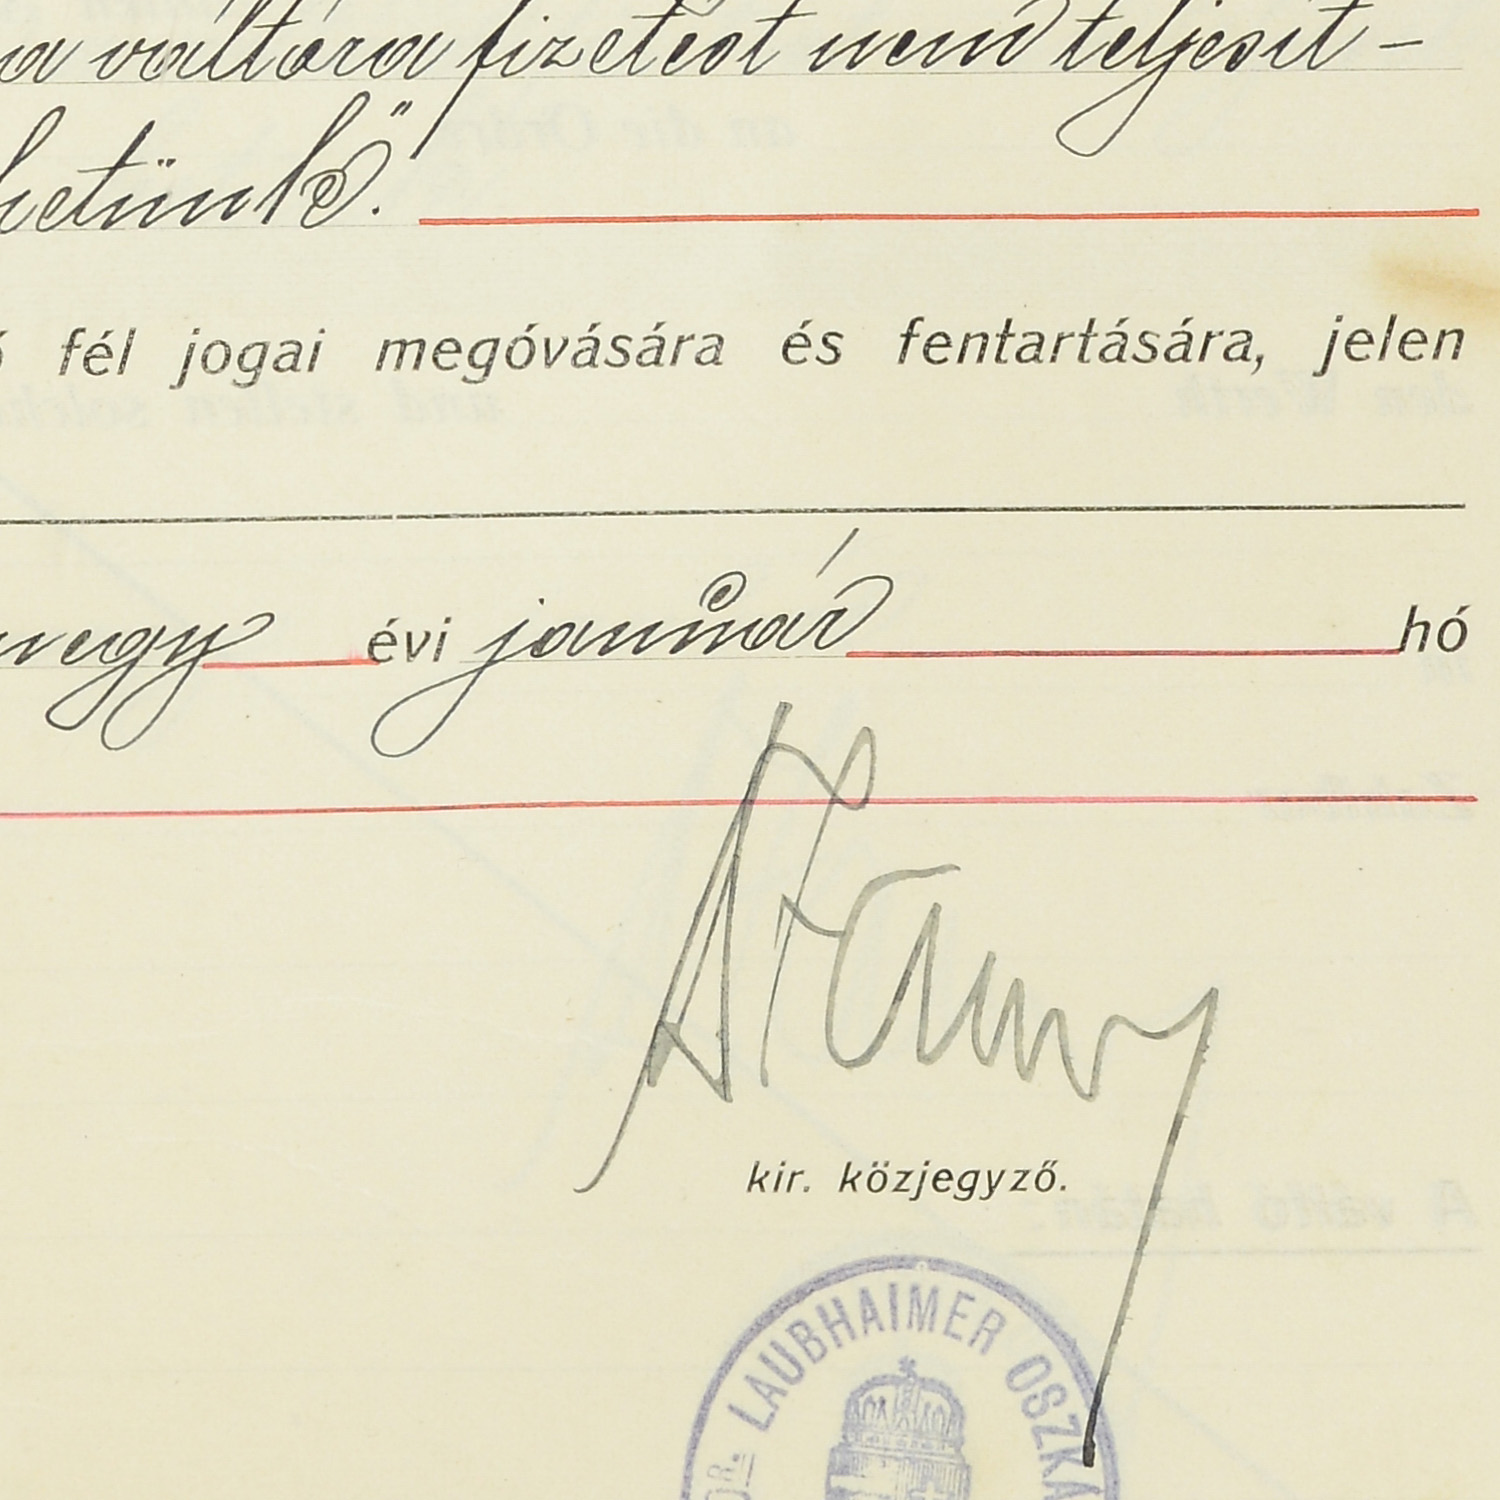 a váltóra fizetést nem teljesít -
hetünk".
fél jogai megóvására és fentartására, jelen
négy évi január hó
kir. közjegyző.
Dr. LAUBHAIMER OSZKÁ